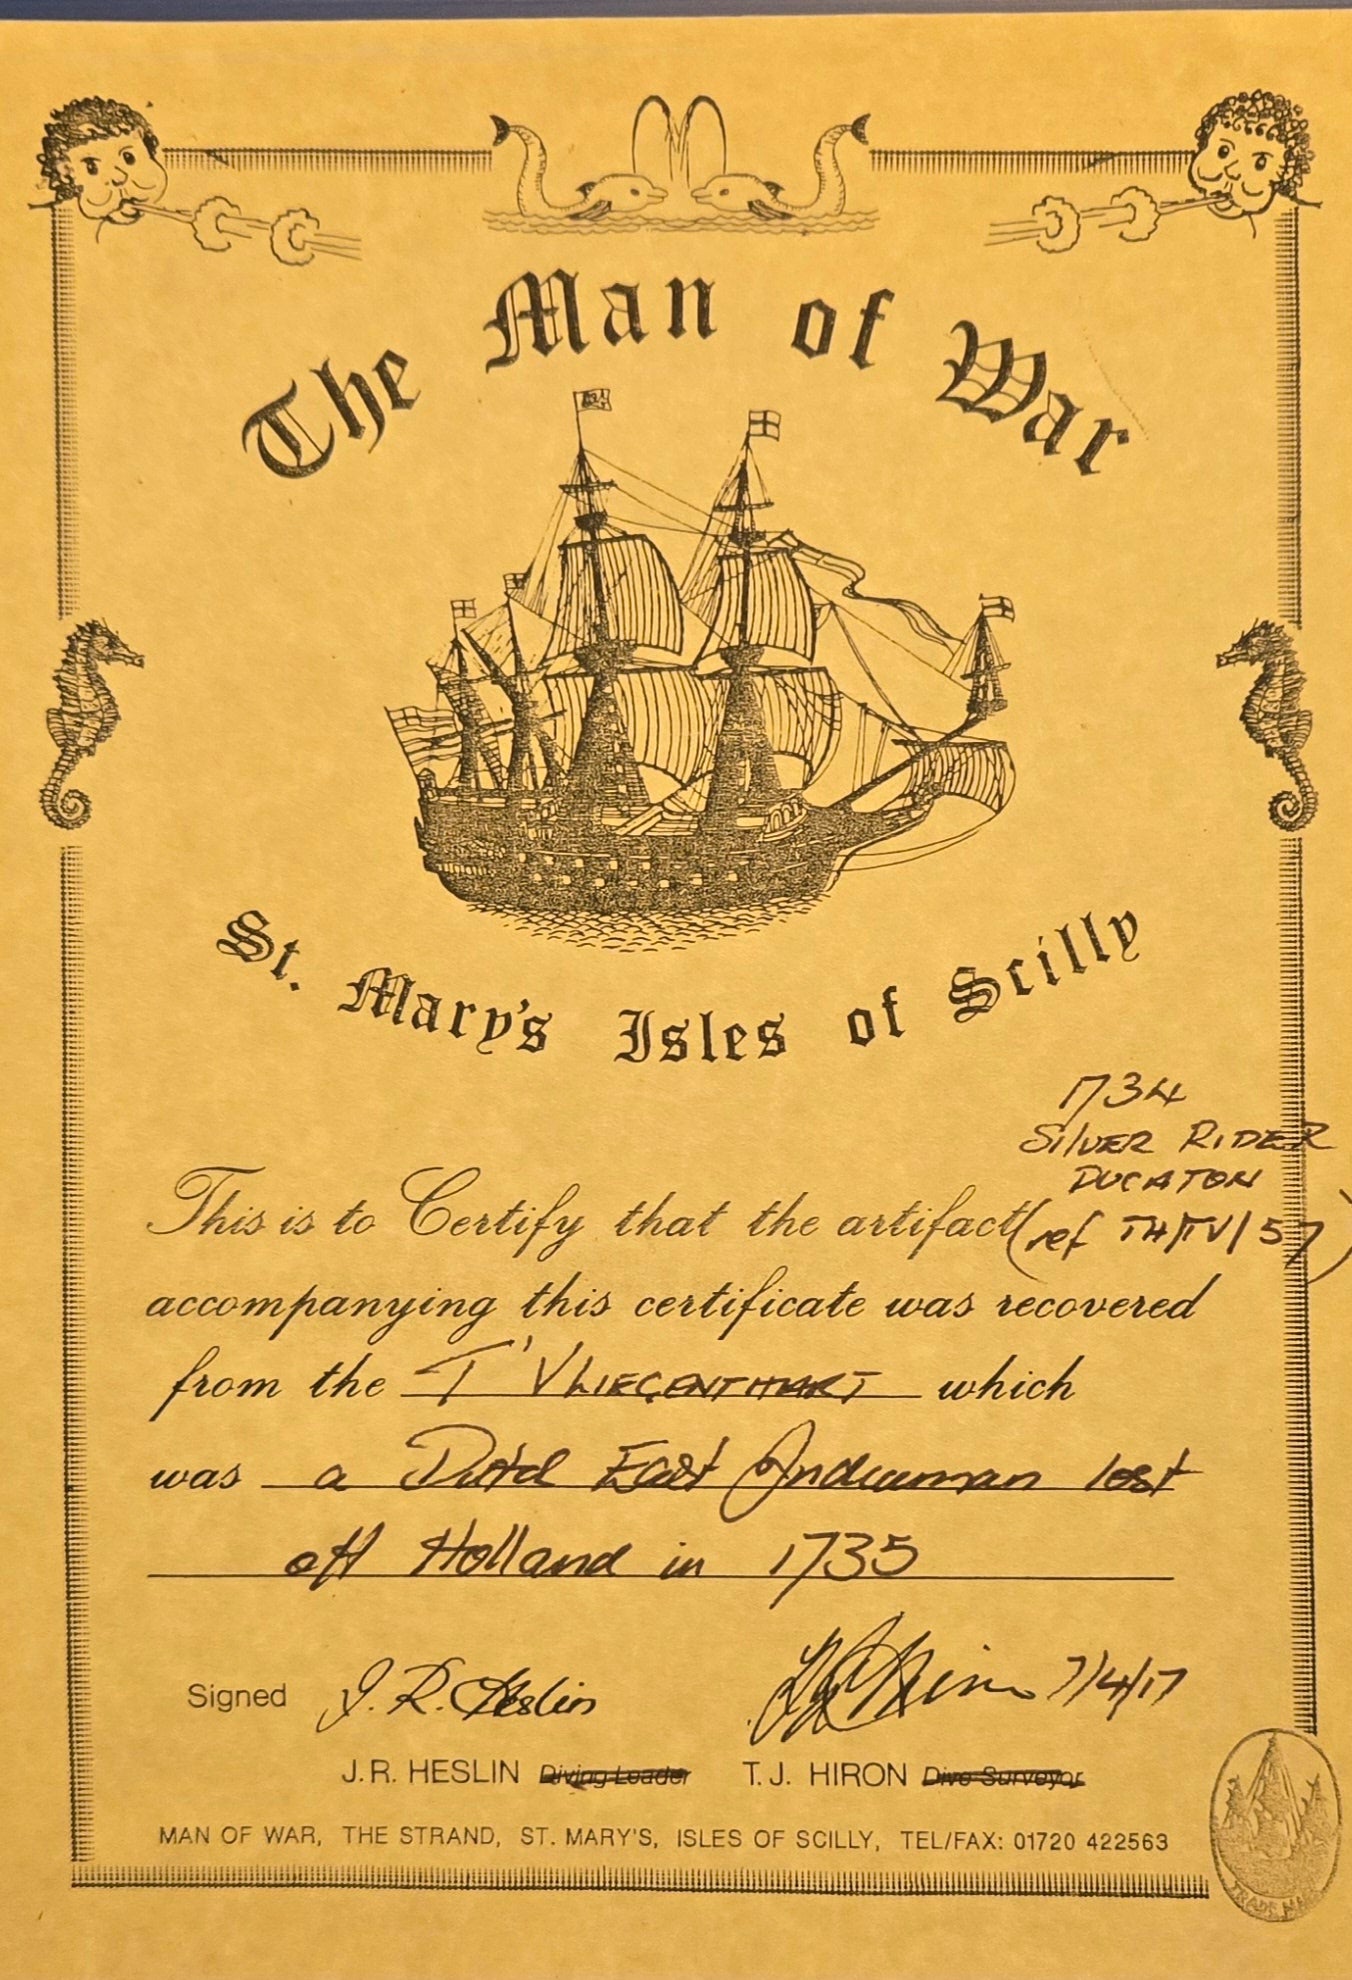 The Man of War
St. Mary's Isles of Scilly
1734
SILVER RIDER
DUCATON
This is to Certify that the artifact (ref TH/TV/57)
accompanying this certificate was recovered
from the T'VLIEGENTHART which
was a Dutch East Indiaman lost
off Holland in 1735
Signed J.R. Heslin T.J. Hiron 7/4/17
J.R. HESLIN Diving Leader T.J. HIRON Dive Surveyor
MAN OF WAR, THE STRAND, ST. MARY'S, ISLES OF SCILLY, TEL/FAX: 01720 422563
TRADE MARK